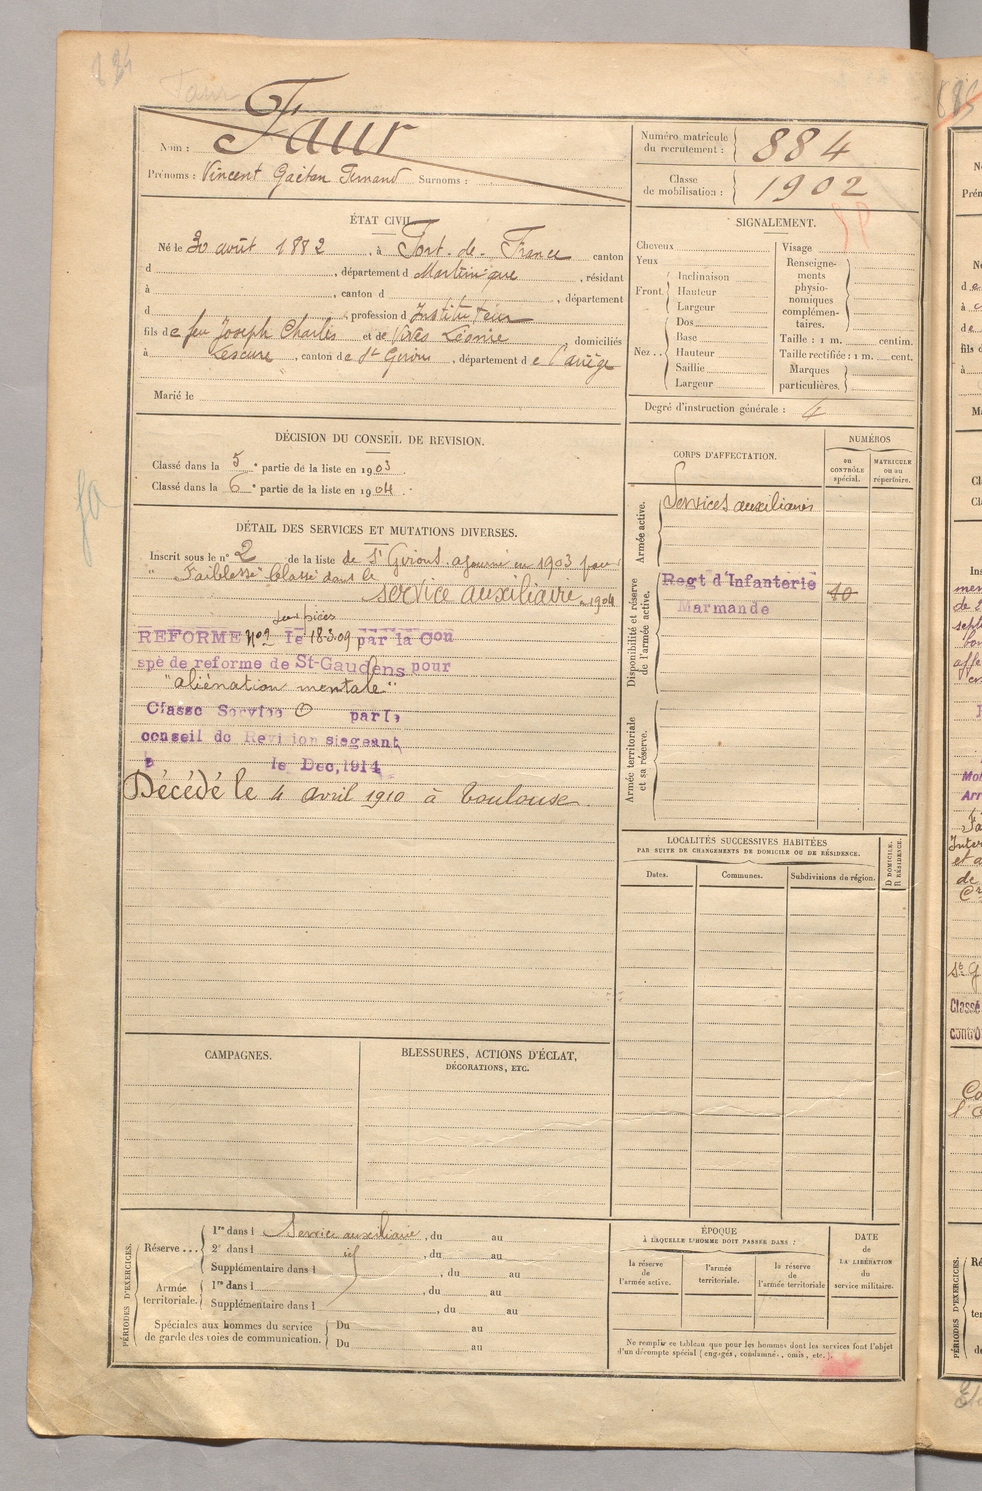 884
Faur
Nom : Faur
Prénoms : Vincent Gaëtan Fernand Surnoms :
Numéro matricule du recrutement : 884
Classe de mobilisation : 1902
ÉTAT CIVIL.
Né le 30 août 1882, à Fort-de-France canton
d , département d Martinique , résidant
à , canton d , département
d , profession d Instituteur
fils de feu Joseph Charles et de Vivès Léonie domiciliés
à Lescure , canton de St Girons , département de l'Ariège
Marié le
SIGNALEMENT.
Cheveux
Yeux
Front.
Inclinaison
Hauteur
Largeur
Nez..
Dos
Base
Hauteur
Saillie
Largeur
Visage
Renseigne-
ments
physio-
nomiques
complémen-
taires.
Taille : 1 m. centim.
Taille rectifiée : 1 m. cent.
Marques
particulières.
Degré d'instruction générale : 4
DÉCISION DU CONSEIL DE REVISION.
Classé dans la 5e partie de la liste en 1903.
Classé dans la 6e partie de la liste en 1904.
DÉTAIL DES SERVICES ET MUTATIONS DIVERSES.
Inscrit sous le n° 2 de la liste de St Girons. ajourné en 1903 pour
"Faiblesse" Classé dans le
service auxiliaire en 1904
REFORME N°2 le 18-3-09 par la Con
spé de reforme de St-Gaudens pour
"aliénation mentale"
Classe Service par le
conseil de Revision siegeant
le Dec, 1914
Décédé le 4 avril 1910 à Toulouse.
CORPS D'AFFECTATION.
NUMÉROS
DU CONTRÔLE spécial.
MATRICULE ou au répertoire.
Armée active.
Services auxiliaires
Disponibilité et réserve de l'armée active.
Regt d'Infanterie
Marmande
Armée territoriale et sa réserve.
LOCALITÉS SUCCESSIVES HABITÉES
PAR SUITE DE CHANGEMENTS DE DOMICILE OU DE RÉSIDENCE.
Dates.
Communes.
Subdivisions de région.
D DOMICILE.
R RÉSIDENCE.
CAMPAGNES.
BLESSURES, ACTIONS D'ÉCLAT,
DÉCORATIONS, ETC.
PÉRIODES D'EXERCICES.
Réserve ...
1re dans l Service auxiliaire , du au
2e dans l id , du au
Supplémentaire dans l , du au
Armée territoriale.
1re dans l , du au
Supplémentaire dans l , du au
Spéciales aux hommes du service
de garde des voies de communication.
Du au
Du au
ÉPOQUE
À LAQUELLE L'HOMME DOIT PASSER DANS :
la réserve de l'armée active.
l'armée territoriale.
la réserve de l'armée territoriale
DATE de LA LIBÉRATION du service militaire.
Ne remplir ce tableau que pour les hommes dont les services font l'objet
d'un décompte spécial (engagés, condamnés, omis, etc.).